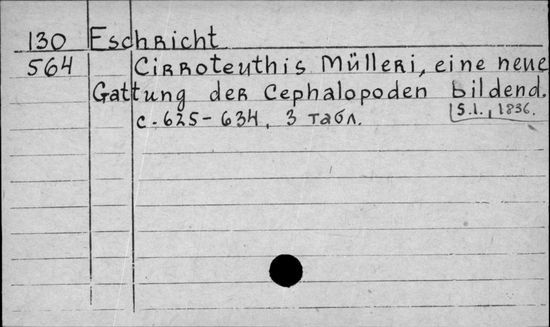 130 Eschricht
564 Cirroteuthis Mülleri, eine neue
Gattung der Cephalopoden bildend.
с. 625-634, 3 табл. [S.l., 1836.